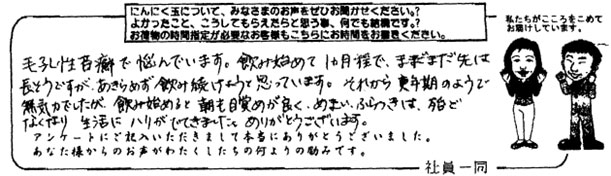 にんにく玉について、みなさまのお声をぜひお聞かせください。?
よかったこと、こうしてもらえたらと思う事、何でも結構です。?
お荷物の時間指定が必要なお客様もこちらにお時間をお書きください。
私たちがこころをこめて
お届けしています。
毛孔性苔癬で悩んでいます。飲み始めて1ヵ月程で、まだまだ先は
長そうですが、あきらめず飲み続けようと思っています。それから更年期のようで
無気力でしたが、飲み始めると朝も目覚めが良く、めまい、ふらつきは、殆ど
なくなり生活にハリがでてきました。ありがとうございます。
アンケートにご記入いただきまして本当にありがとうございました。
あなた様からのお声がわたくしたちの何よりの励みです。
社員一同